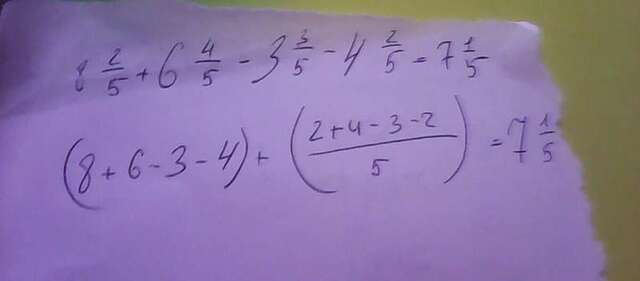 8 2/5 + 6 4/5 - 3 3/5 - 4 2/5 = 7 1/5
(8 + 6 - 3 - 4) + ((2 + 4 - 3 - 2)/5) = 7 1/5